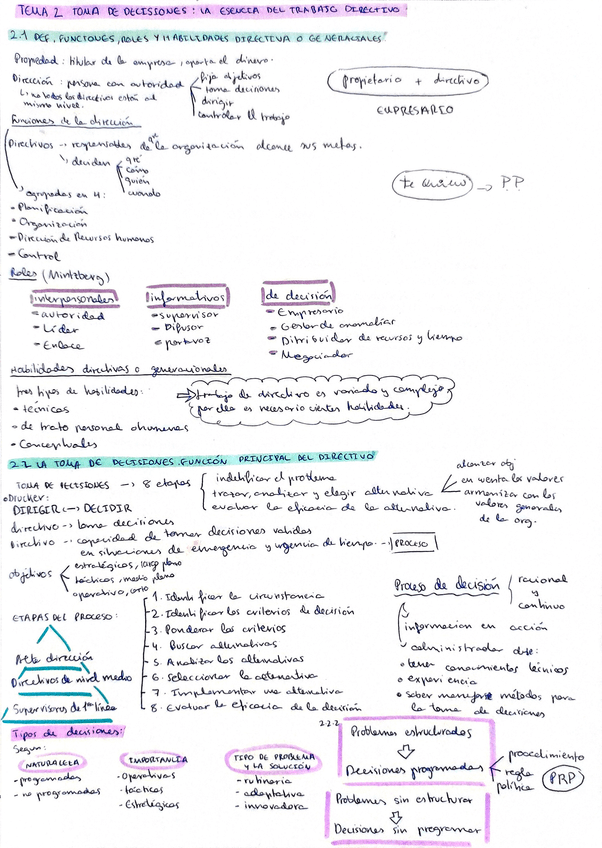 TEMA 2 TOMA DE DECISIONES: LA ESENCIA DEL TRABAJO DIRECTIVO
2.1 DEF, FUNCIONES, ROLES Y HABILIDADES DIRECTIVA O GENERACIALES
Propiedad: titular de la empresa, aporta el dinero.
Dirección: persona con autoridad
fija objetivos
toma decisiones
dirigir
controlar el trabajo
no todos los directivos están al mismo nivel.
propietario + directivo
EMPRESARIO
Funciones de la dirección
Directivos → responsables de que la organización alcance sus metas.
deciden
qué
cómo
quién
cuando
te quiero → P.P
agrupadas en 4:
- Planificación
- Organización
- Dirección de Recursos humanos
- Control
Roles (Mintzberg)
interpersonales
- autoridad
- Líder
- Enlace
informativos
- supervisor
- Difusor
- portavoz
de decisión
- Empresario
- Gestor de anomalías
- Ditribuidor de recursos y tiempo
- Negociador
Habilidades directivas o generacionales
tres tipos de habilidades:
• técnicas
• de trato personal o humanas
• Conceptuales
trabajo de directivo es variado y complejo
por ello es necesario ciertas habilidades.
2.2 LA TOMA DE DECISIONES. FUNCIÓN PRINCIPAL DEL DIRECTIVO
TOMA DE DECISIONES → 8 etapas
indetificar el problema
tratar, analizar y elegir alternativa
evaluar la eficacia de la alternativa.
alcanzar obj
en venta los valores
armonizar con los
valores generales
de la org.
• Drucker:
DIRIGIR ↔ DECIDIR
directivo → toma decisiones
Directivo → capacidad de tomar decisiones validas
en situaciones de emergencia y urgencia de tiempo. → PROCESO
objetivos
estratégicos, largo plazo
tácticos, medio plazo
operativo, corto
ETAPAS DEL PROCESO:
1. Identificar la circunstancia
2. Identificar los criterios de decisión
3. Ponderar los criterios
4. Buscar alternativas
5. Analizar las alternativas
6. Seleccionar la alternativa
7. Implementar una alternativa
8. Evaluar la eficacia de la decisión
Alta dirección
Directivos de nivel medio
Supervisores de 1ª línea
Proceso de decisión
racional
y
continuo
informacion en acción
administrador debe:
• tener conocimientos técnicos
• experiencia
• saber manejar métodos para
la toma de decisiones
Tipos de decisiones:
Segun:
NATURALEZA
- programadas
- no programadas
IMPORTANCIA
- Operativas
- tácticas
- Estratégicas
TIPO DE PROBLEMA
Y LA SOLUCIÓN
- rutinaria
- adaptativa
- innovadora
2.2.2
Problemas estructurados
Decisiones programadas
procedimiento
regla
política
PRP
Problemas sin estructurar
Decisiones sin programar